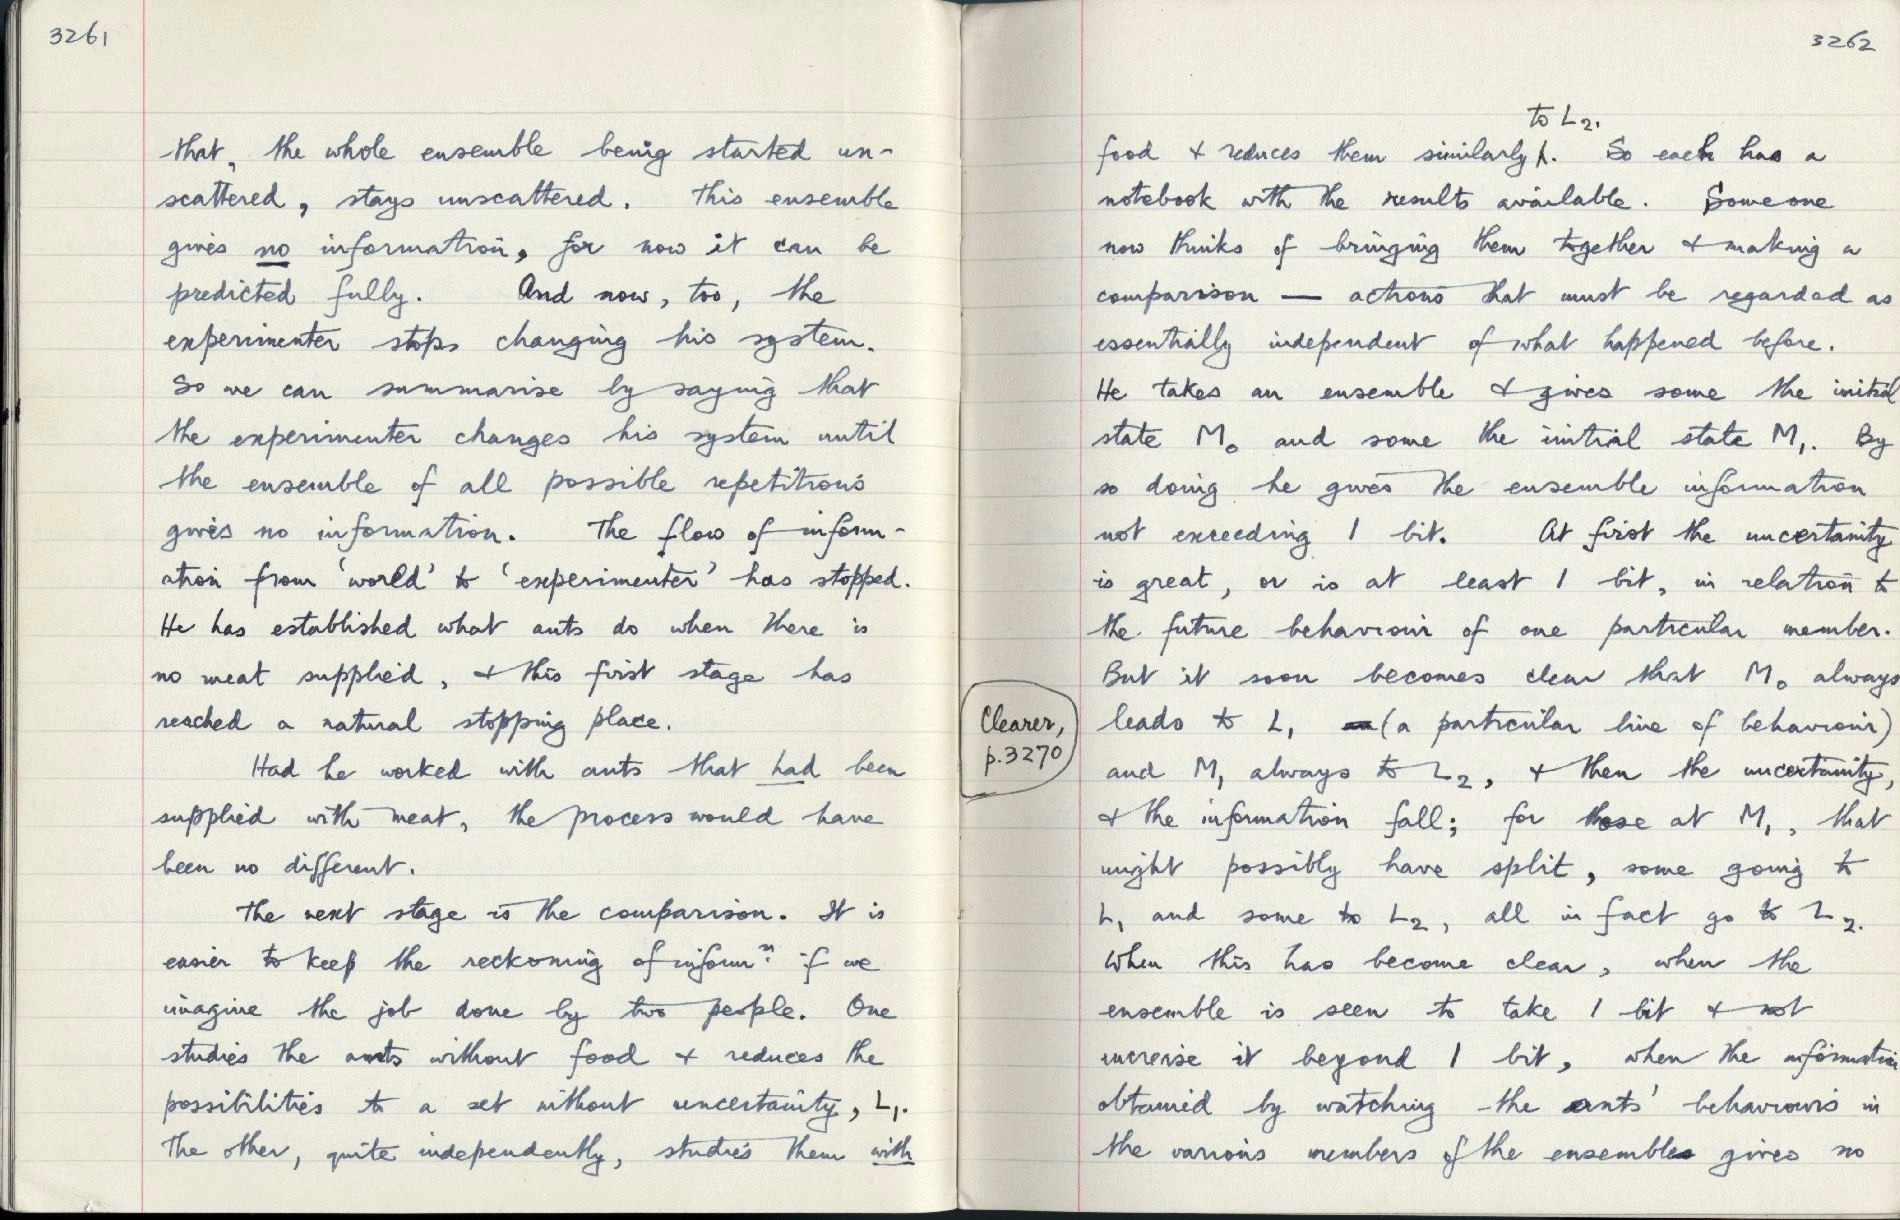 3261
that, the whole ensemble being started un-
scattered, stays unscattered. This ensemble
gives no information, for now it can be
predicted fully. And now, too, the
experimenter stops changing his system.
So we can summarise by saying that
the experimenter changes his system until
the ensemble of all possible repetitions
gives no information. The flow of inform-
ation from 'world' to 'experimenter' has stopped.
He has established what ants do when there is
no meat supplied, & this first stage has
reached a natural stopping place.
Had he worked with ants that had been
supplied with meat, the process would have
been no different.
The next stage is the comparison. It is
easier to keep the reckoning of informⁿ. if we
imagine the job done by two people. One
studies the ants without food & reduces the
possibilities to a set without uncertainty, L₁.
The other, quite independently, studies them with
3262
to L₂.
food & reduces them similarly. So each has a
notebook with the results available. Someone
now thinks of bringing them together & making a
comparison — actions that must be regarded as
essentially independent of what happened before.
He takes an ensemble & gives some the initial
state M₀ and some the initial state M₁. By
so doing he gives the ensemble information
not exceeding 1 bit. At first the uncertainty
is great, or is at least 1 bit, in relation to
the future behaviour of one particular member.
But it soon becomes clear that M₀ always
leads to L₁ (a particular line of behaviour)
and M₁ always to L₂, & then the uncertainty,
& the information fall; for those at M₁, that
might possibly have split, some going to
L₁ and some to L₂, all in fact go to L₂.
When this has become clear, when the
ensemble is seen to take 1 bit & not
increase it beyond 1 bit, when the information
obtained by watching the ants' behaviours in
the various members of the ensemble gives no
Clearer,
p.3270